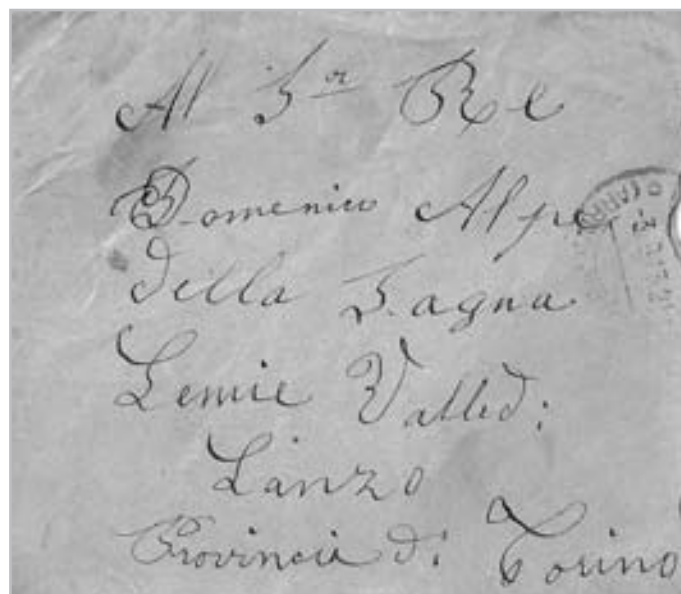 Al Sor Re
Domenico Alpe
della Sagna
Lemie Valle di
Lanzo
Provincia di Torino